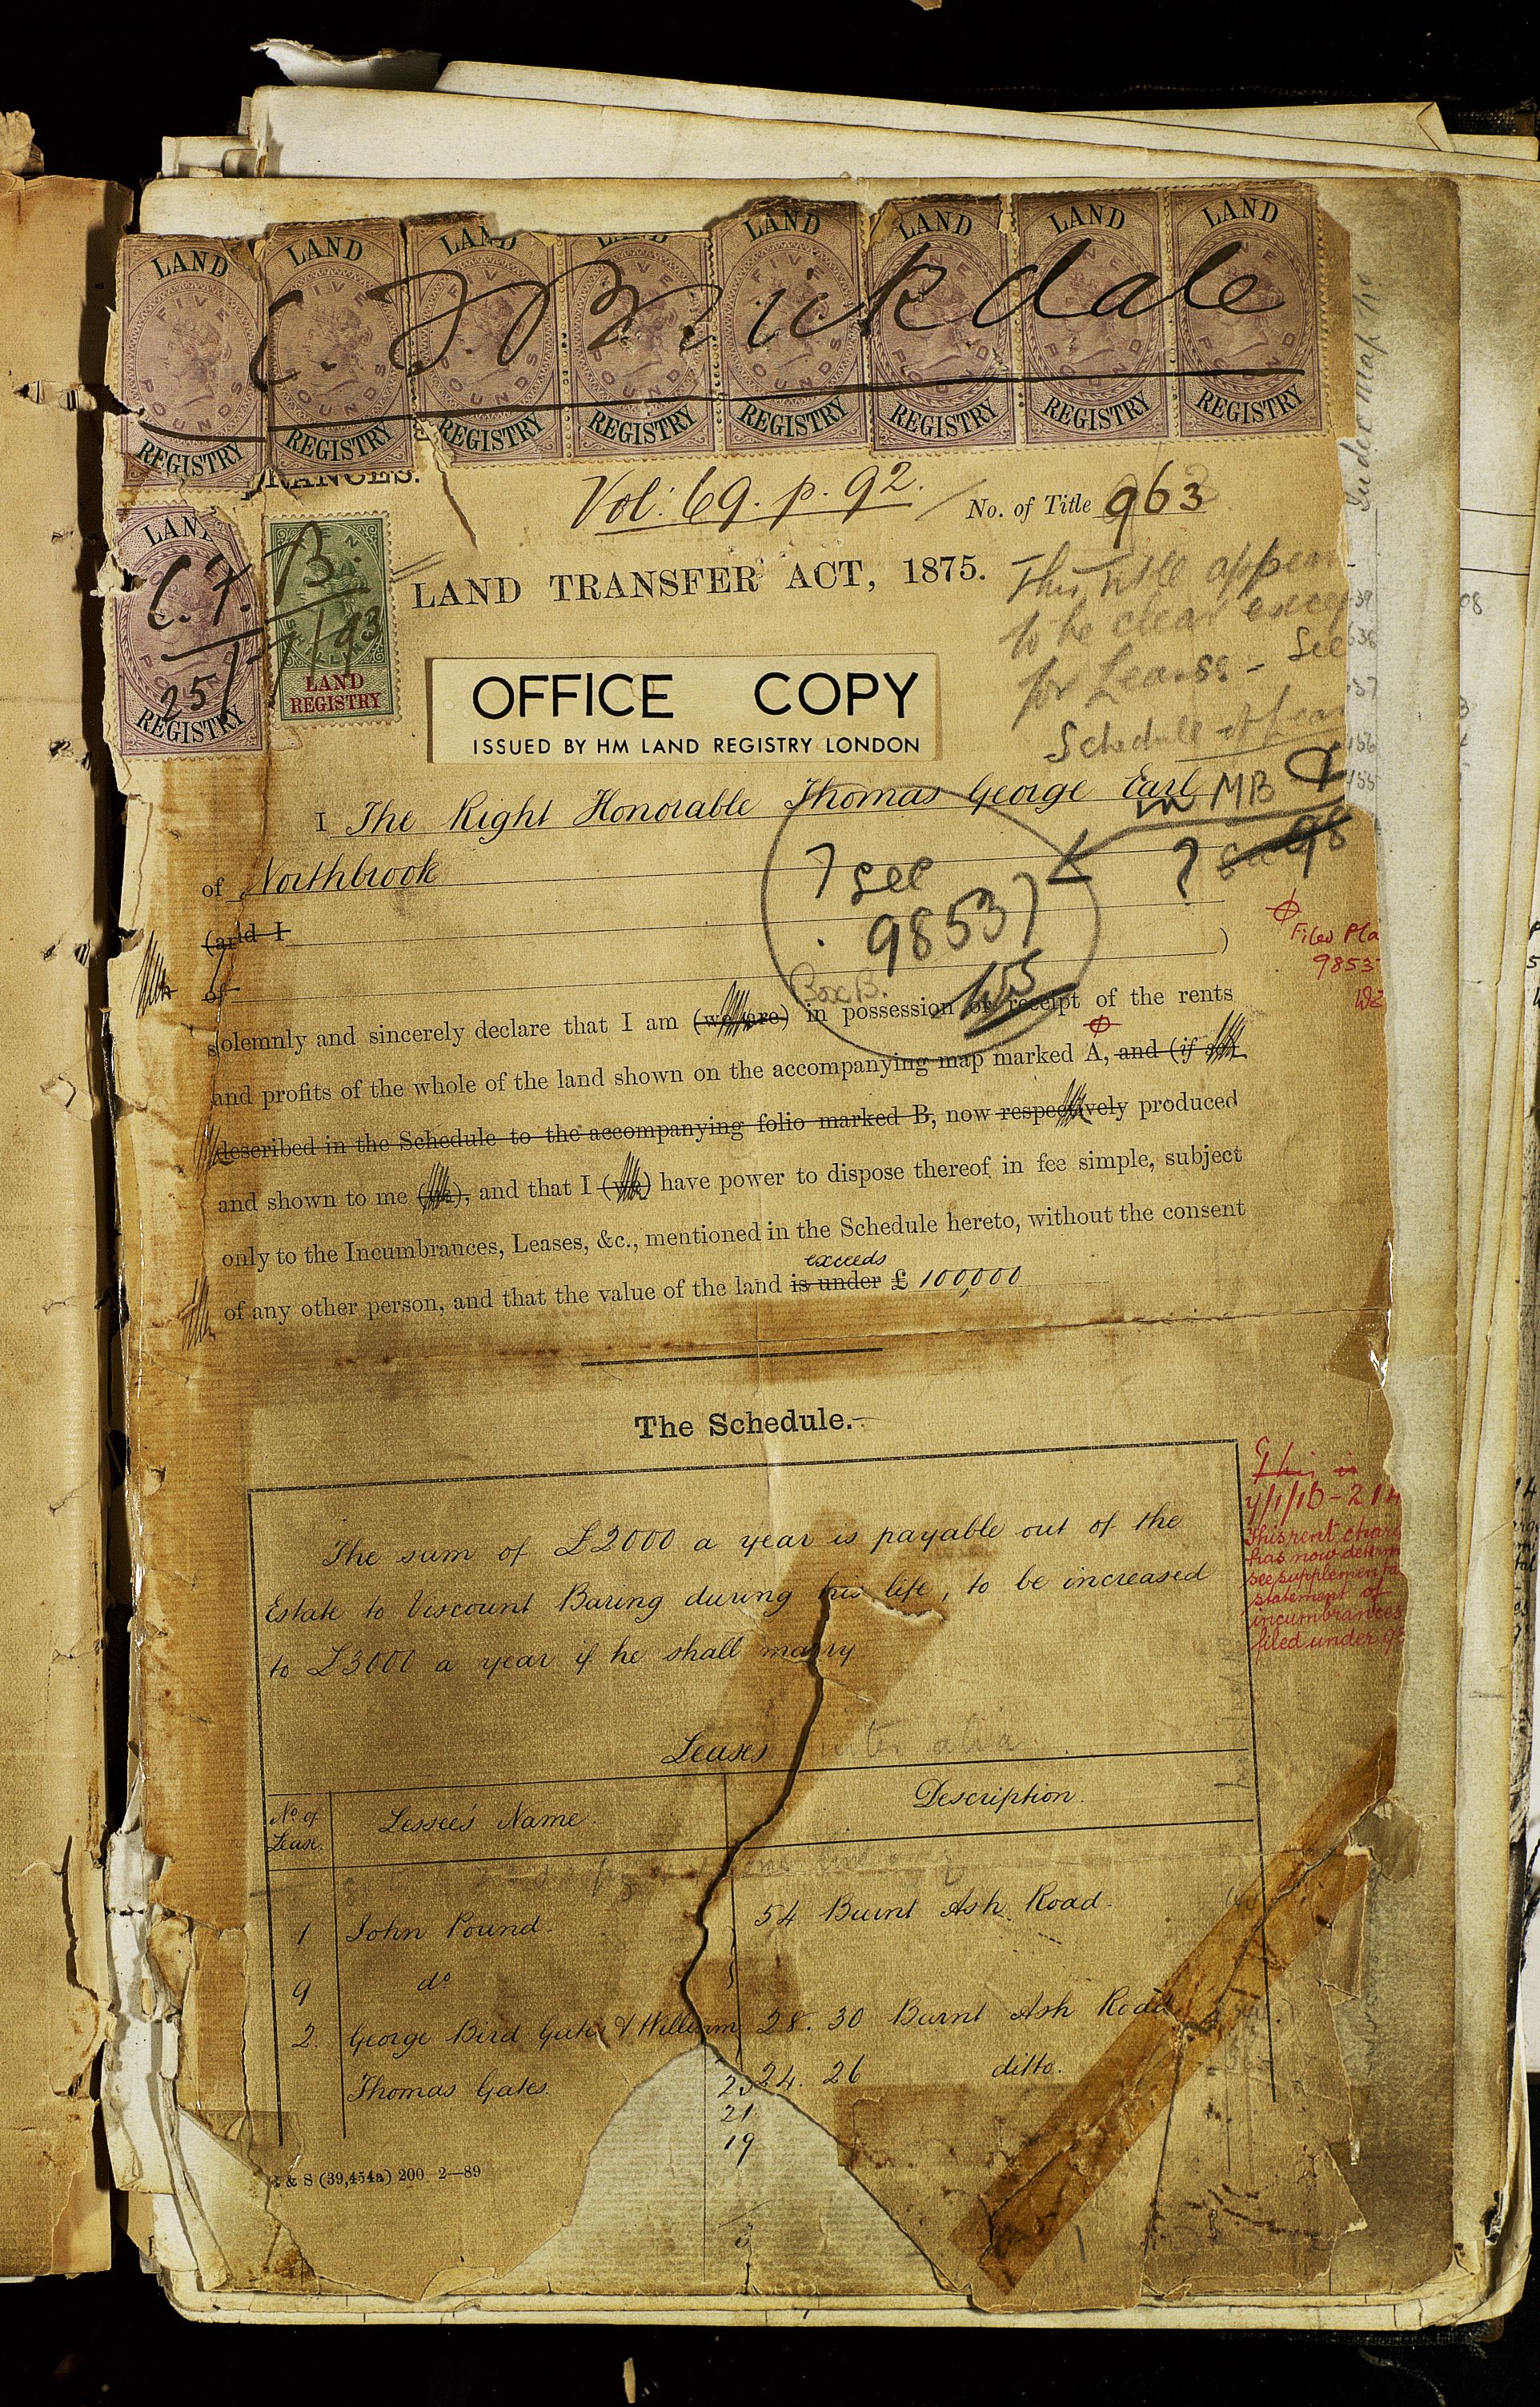 LAND LAND LAND LAND LAND LAND LAND
FIVE POUNDS
C. F. Brickdale
REGISTRY REGISTRY REGISTRY REGISTRY REGISTRY REGISTRY REGISTRY REGISTRY
RANCES.
Vol: 69. p. 92.
No. of Title 963
LAND
REGISTRY
TEN
LAND
REGISTRY
C. F. B.
25/7/93
LAND TRANSFER ACT, 1875.
This title appear
to be clear excep
for Leases - See
Schedule of Lea
Index Map
OFFICE COPY
ISSUED BY HM LAND REGISTRY LONDON
I The Right Honorable Thomas George Earl
of Northbrook
MB
? see
98537
Box B.
(and I
of )
Filed Pla
9853
solemnly and sincerely declare that I am (we are) in possession or receipt of the rents
and profits of the whole of the land shown on the accompanying map marked A, and (if
described in the Schedule to the accompanying folio marked B, now respectively produced
and shown to me (us), and that I (we) have power to dispose thereof in fee simple, subject
only to the Incumbrances, Leases, &c., mentioned in the Schedule hereto, without the consent
exceeds
of any other person, and that the value of the land is under £ 100,000
The Schedule.
The sum of £2000 a year is payable out of the
Estate to Viscount Baring during his life, to be increased
to £3000 a year if he shall marry
This is
This rent char
has now determ
see supplementa
statement of
incumbrances
filed under 9
Leases inter alia
No. of Lease.
Lessee's Name.
Description.
1 John Pound. 54 Burnt Ash Road.
9 do
2. George Bird Gates & William 28. 30 Burnt Ash Road
Thomas Gates. 24. 26 ditto.
21
19
& S (39,454a) 200 2—89